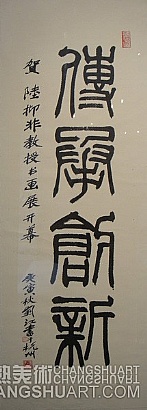 傳學創新
賀陸抑非教授书画展开幕
庚寅秋劉江書于杭州
熱美術
CHANGSHUART
CHANGSHUART.COM